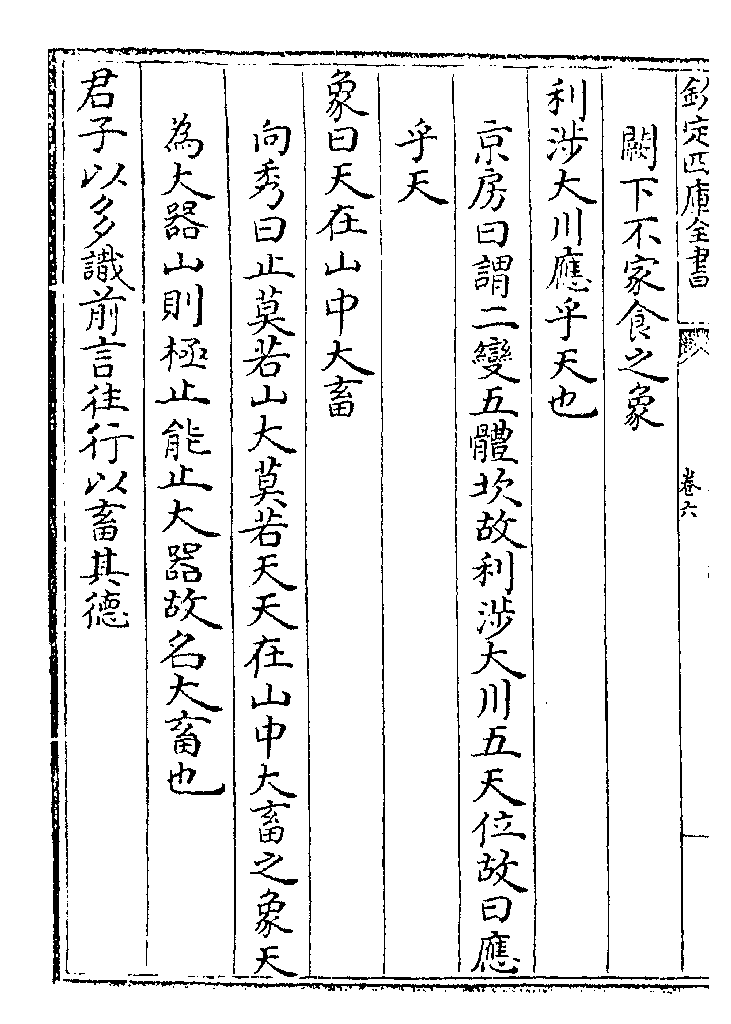 欽定四庫全書
卷六
闕下不家食之象
利涉大川應乎天也
京房曰謂二變五體坎故利涉大川五天位故曰應
乎天
象曰天在山中大畜
向秀曰止莫若山大莫若天天在山中大畜之象天
為大器山則極止能止大器故名大畜也
君子以多識前言往行以畜其德